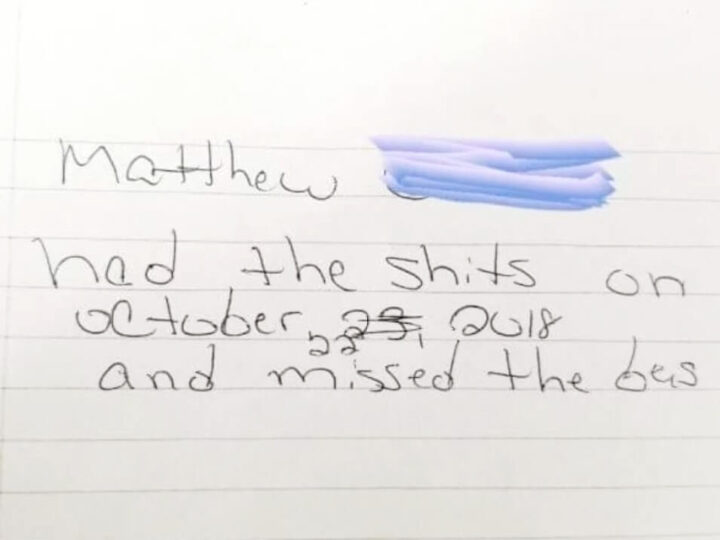 Matthew
had the shits on
october, 23, 2018
22
and missed the bus